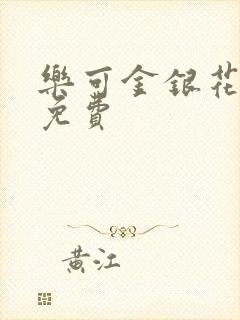 樂可金銀花
免費
黄江